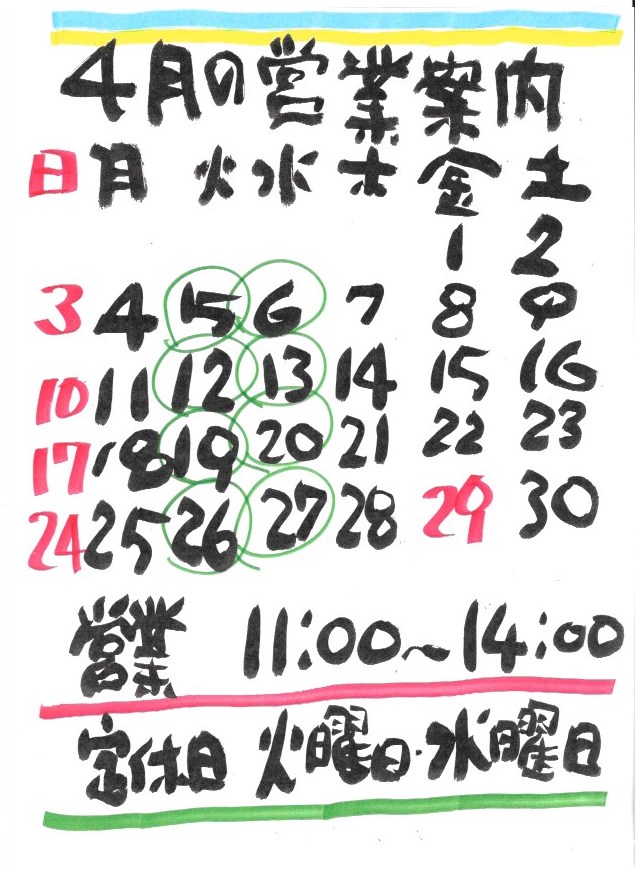 4月の営業案内
日 月 火 水 木 金 土
1 2
3 4 5 6 7 8 9
10 11 12 13 14 15 16
17 18 19 20 21 22 23
24 25 26 27 28 29 30
営業 11:00~14:00
定休日 火曜日・水曜日